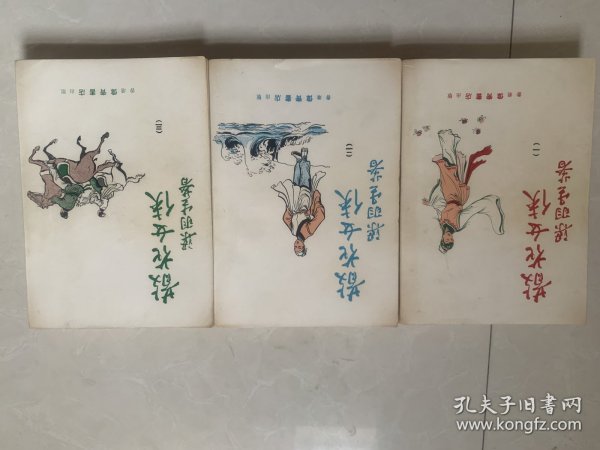 散花女俠
梁羽生著
(一)
香港偉青書店出版
散花女俠
梁羽生著
(二)
香港偉青書店出版
散花女俠
梁羽生著
(三)
香港偉青書店出版
孔夫子旧书网
www.kongfz.com